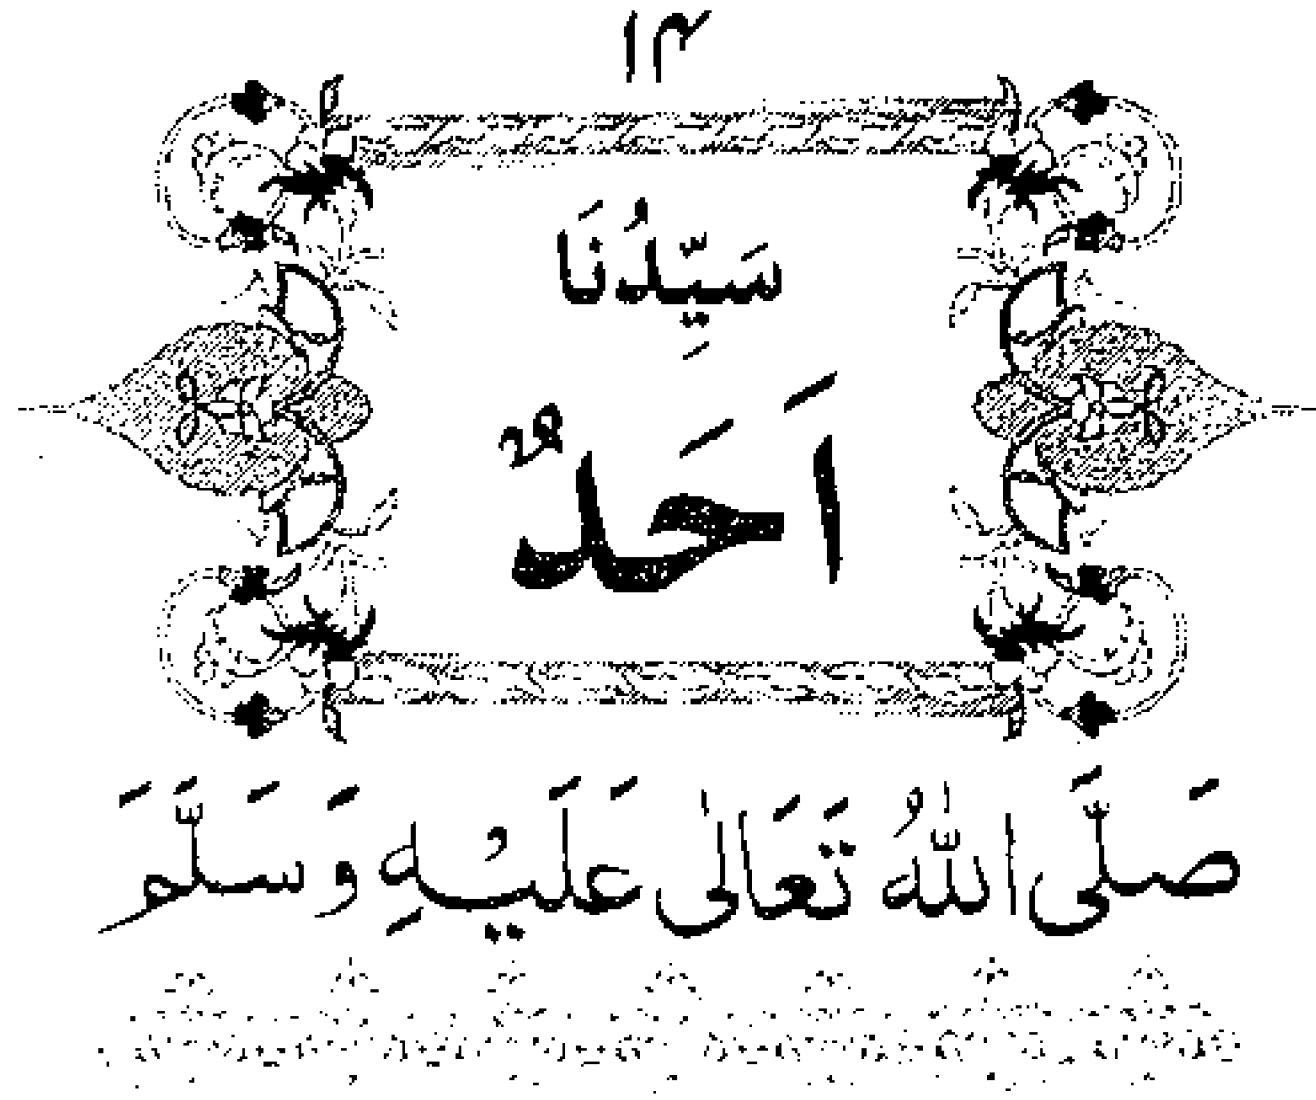 ۱۴
سَیِّدُنَا
اَحَدٌ
صَلَّی اللّٰهُ تَعَالٰی عَلَیْهِ وَسَلَّمَ